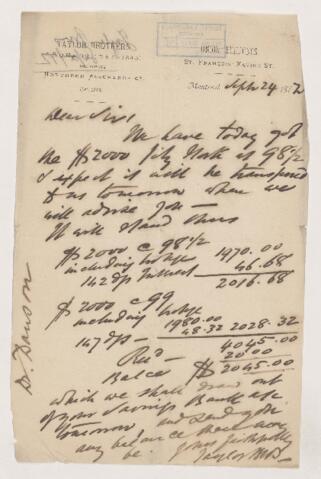 TAYLOR BROTHERS
St. Francois Xavier St.
Montreal, Sept. 24 18 2
Dear Sir
We have today got
the $2000 City Stock at 98 1/2
& expect it will be transferred
to us tomorrow when we
will advise you —
It will stand thus
$2000 @ 98 1/2 1970.00
including
142 dys Interest 46.68
2016.68
$2000 @ 99
including 1980.00
147 dys — 48.32 2028.32
4045.00
Recd — 20.00
Balce $2045.00
which we shall draw out
of your Savings Bank a/c
tomorrow and send you
any balance there may
be. Yours faithfully
Taylor Bros
Dr. Dawson